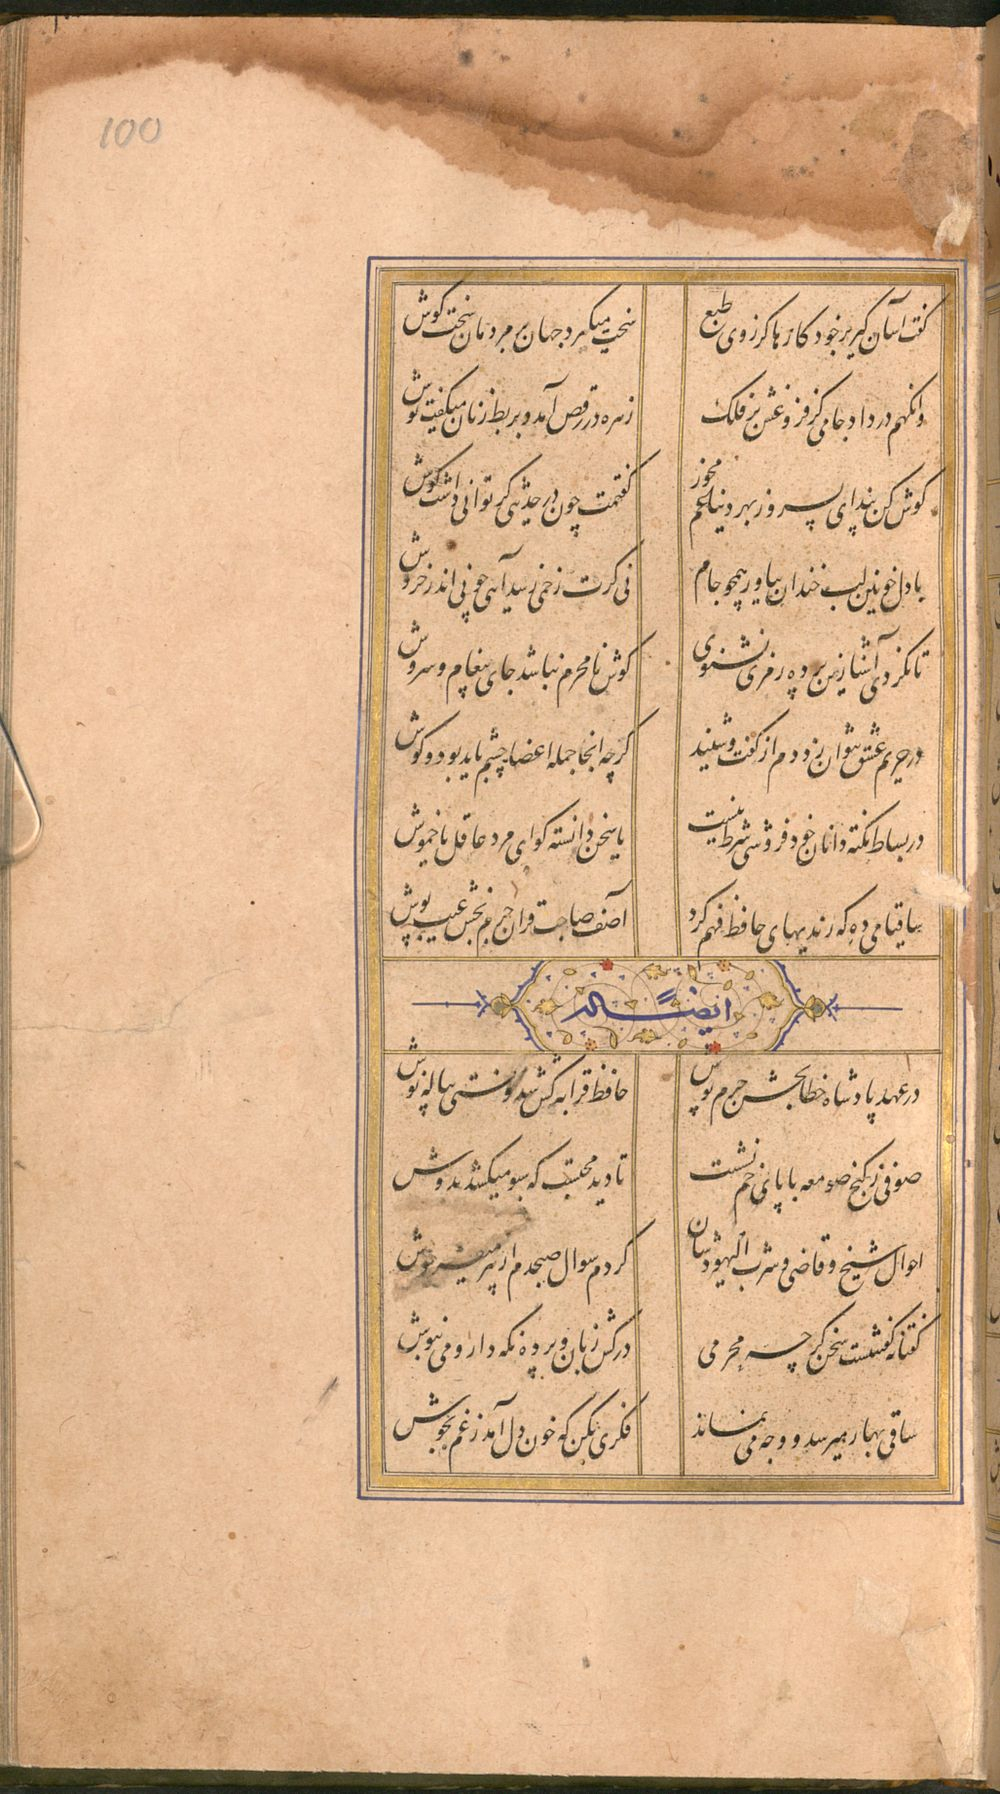 100
گفت آسان گیر بر خود کارها کز روی طبع
سخت میگیرد جهان بر مردمان سخت کوش
وانگهم در داد جامی کز فروغش بر فلک
زهره در رقص آمد و بربط زنان میگفت نوش
گوش کن پند ای پسر وز بهر دنیا غم مخور
گفتمت چون در حدیثی گر توانی داشت گوش
با دل خونین لب خندان بیاور همچو جام
نی گرت زخمی رسد آیی چو نی اندر خروش
تا نگردی آشنا زین پرده رمزی نشنوی
گوش نامحرم نباشد جای پیغام و سروش
در حریم عشق نتوان زد دم از گفت و شنید
گرچه آنجا جمله اعضا چشم باید بود و گوش
در بساط نکته دانان خود فروشی شرط نیست
یا سخن دانسته گو ای مرد عاقل یا خموش
ساقیا می ده که رندیهای حافظ فهم کرد
آصف صاحب قران جرم بخش عیب پوش
ایضاً له
در عهد پادشاه خطابخش جرم پوش
حافظ قرابه کش شد و مفتی پیاله نوش
صوفی ز کنج صومعه با پای خم نشست
تا دید محتسب که سبو میکشد بدوش
احوال شیخ و قاضی و شرب الیهودشان
کردم سوال صبحدم از پیر میفروش
گفتا نه گفتنیست سخن گرچه محرمی
درکش زبان و پرده نگه دار و می بنوش
ساقی بهار میرسد و وجه می نماند
فکری بکن که خون دل آمد ز غم بجوش